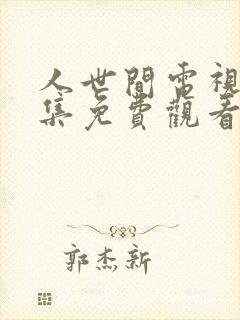 人世間電視
集免費觀看
郭杰新